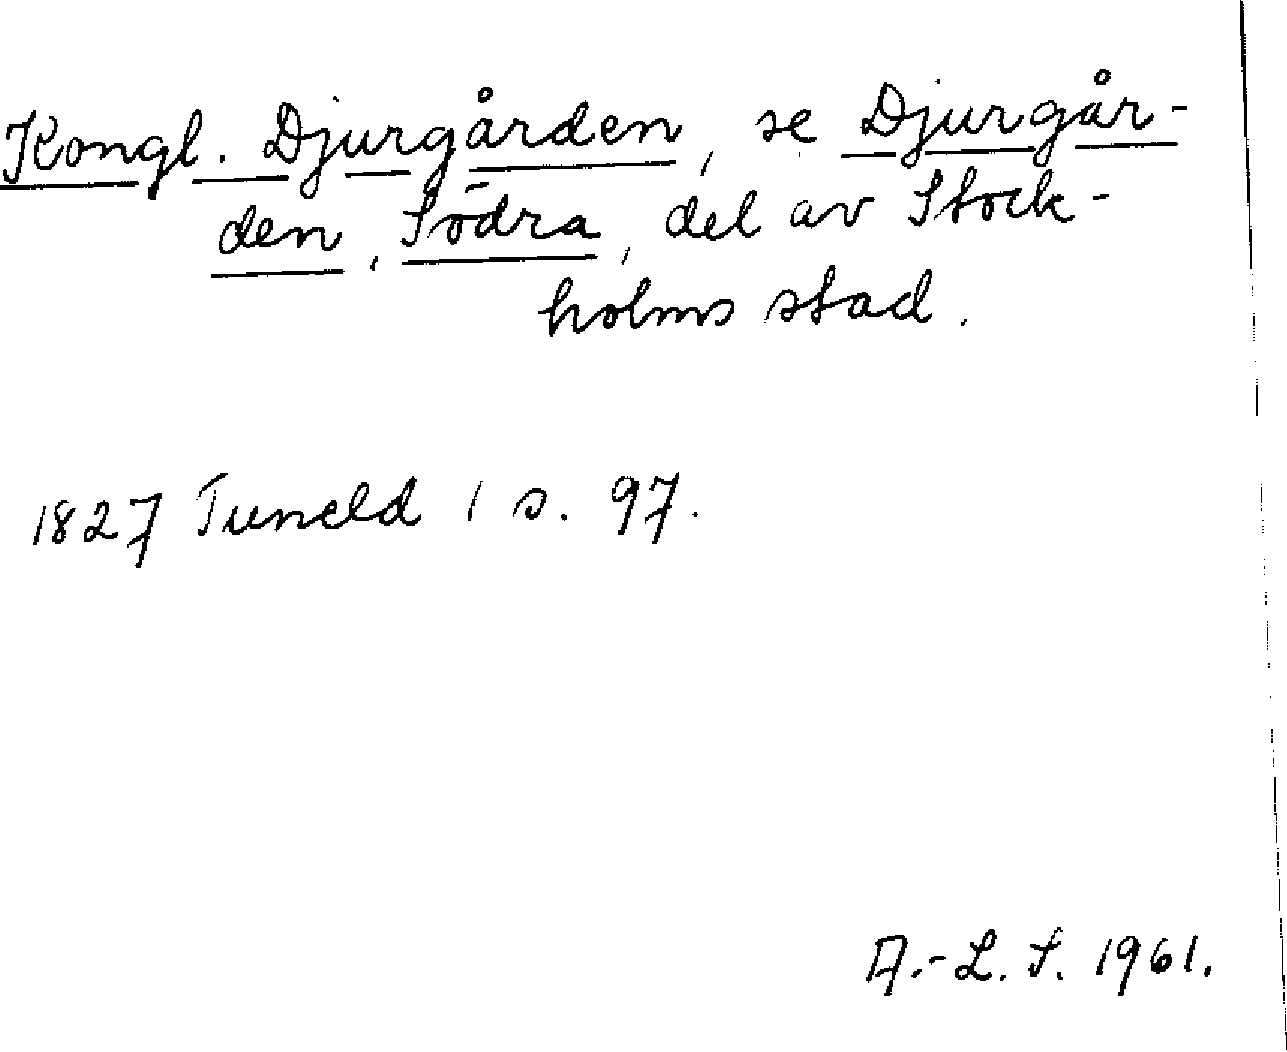 Kongl. Djurgården, se Djurgår-
den, Södra, del av Stock-
holms stad.
1827 Tuneld 1 s. 97.
A.-L. S. 1961.